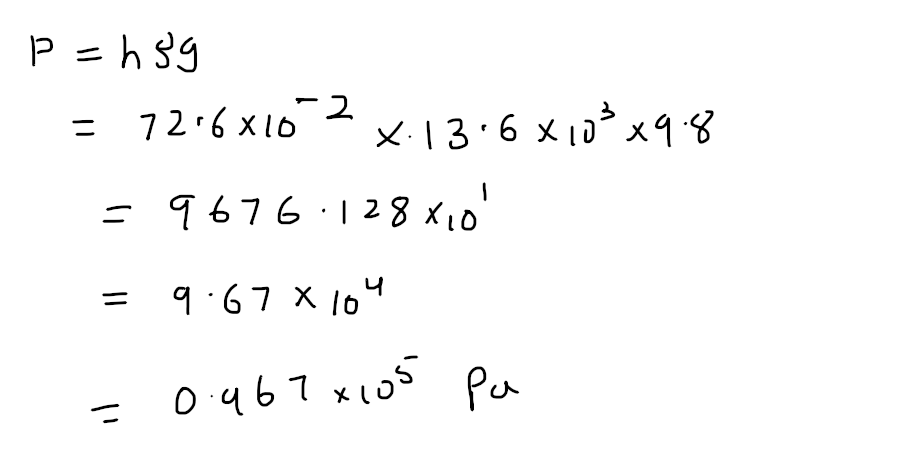 P = hρg
= 72.6 x 10⁻² x 13.6 x 10³ x 9.8
= 9676.128 x 10¹
= 9.67 x 10⁴
= 0.967 x 10⁵ Pa